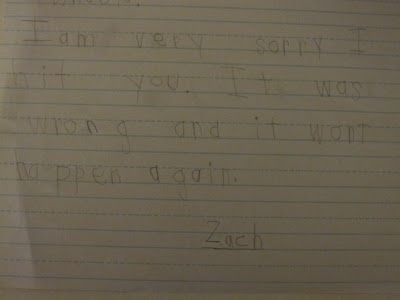 I am very sorry I
hit you. It was
wrong and it wont
happen again.
Zach